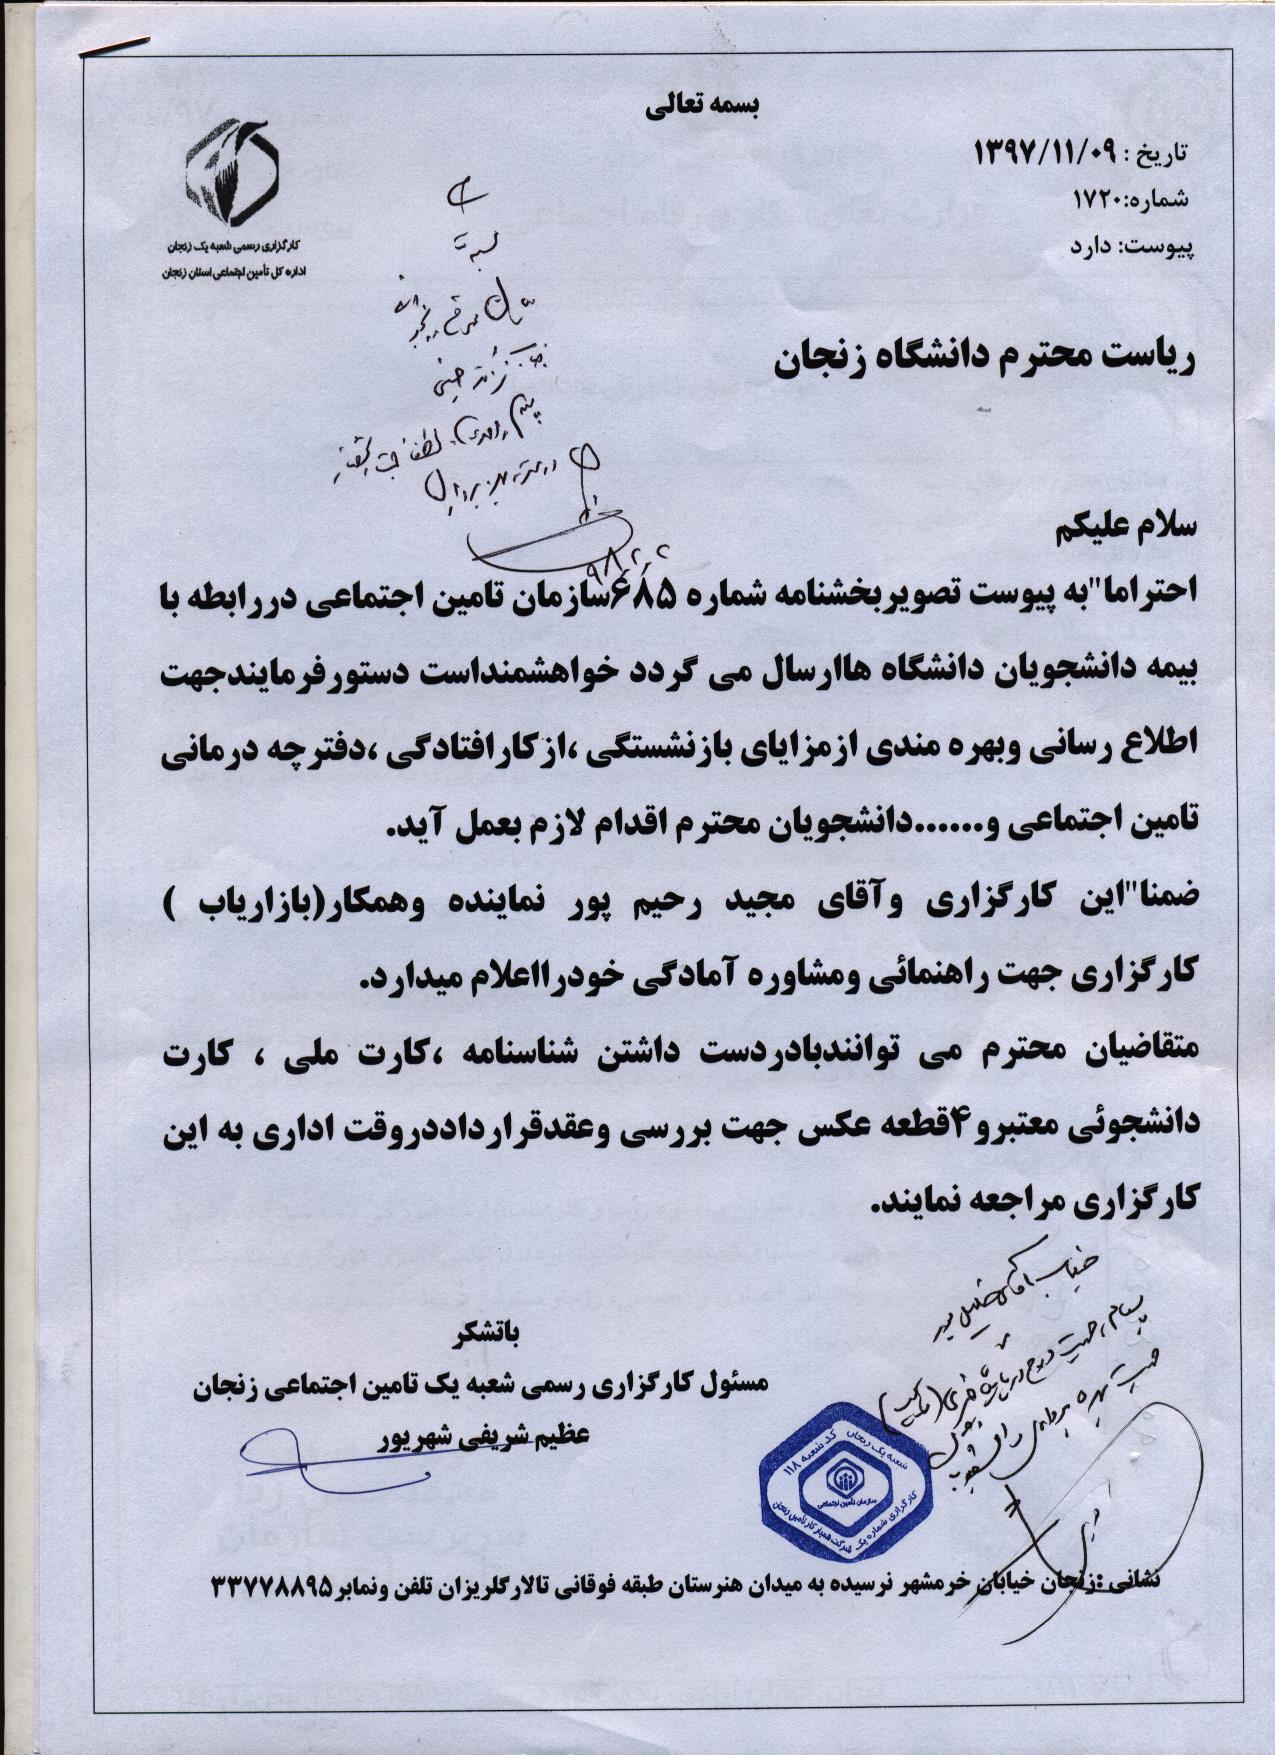 بسمه تعالی
تاریخ : ۱۳۹۷/۱۱/۰۹
شماره:۱۷۲۰
پیوست: دارد
کارگزاری رسمی شعبه یک زنجان
اداره کل تأمین اجتماعی استان زنجان
ریاست محترم دانشگاه زنجان
سلام علیکم
احتراما"به پیوست تصویربخشنامه شماره ۶۸۵سازمان تامین اجتماعی دررابطه با
بیمه دانشجویان دانشگاه هاارسال می گردد خواهشمنداست دستورفرمایندجهت
اطلاع رسانی وبهره مندی ازمزایای بازنشستگی ،ازکارافتادگی ،دفترچه درمانی
تامین اجتماعی و......دانشجویان محترم اقدام لازم بعمل آید.
ضمنا"این کارگزاری وآقای مجید رحیم پور نماینده وهمکار(بازاریاب )
کارگزاری جهت راهنمائی ومشاوره آمادگی خودرااعلام میدارد.
متقاضیان محترم می توانندبادردست داشتن شناسنامه ،کارت ملی ، کارت
دانشجوئی معتبرو۴قطعه عکس جهت بررسی وعقدقرارداددروقت اداری به این
کارگزاری مراجعه نمایند.
باتشکر
مسئول کارگزاری رسمی شعبه یک تامین اجتماعی زنجان
عظیم شریفی شهرپور
شعبه یک زنجان
کد شعبه ۱۱۸
سازمان تأمین اجتماعی
کارگزاری شماره یک
شرکت همیار کار تأمین زنجان
نشانی :زنجان خیابان خرمشهر نرسیده به میدان هنرستان طبقه فوقانی تالارگلریزان تلفن ونمابر۳۳۷۷۸۸۹۵